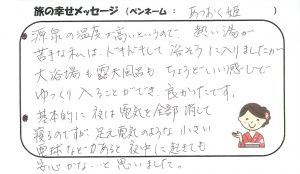 旅の幸せメッセージ（ペンネーム： あつおく姫 ）
源泉の温度が高いというので、熱い湯が
苦手な私は、ドキドキして浴そうに入りましたが
大浴場も露天風呂もちょうどいい感じで
ゆっくり入ることができ、良かったです。
基本的に夜は電気を全部消して
寝るのですが、足元電気のような小さい
電球などがあると夜中に起きても
安心かな…と思いました。